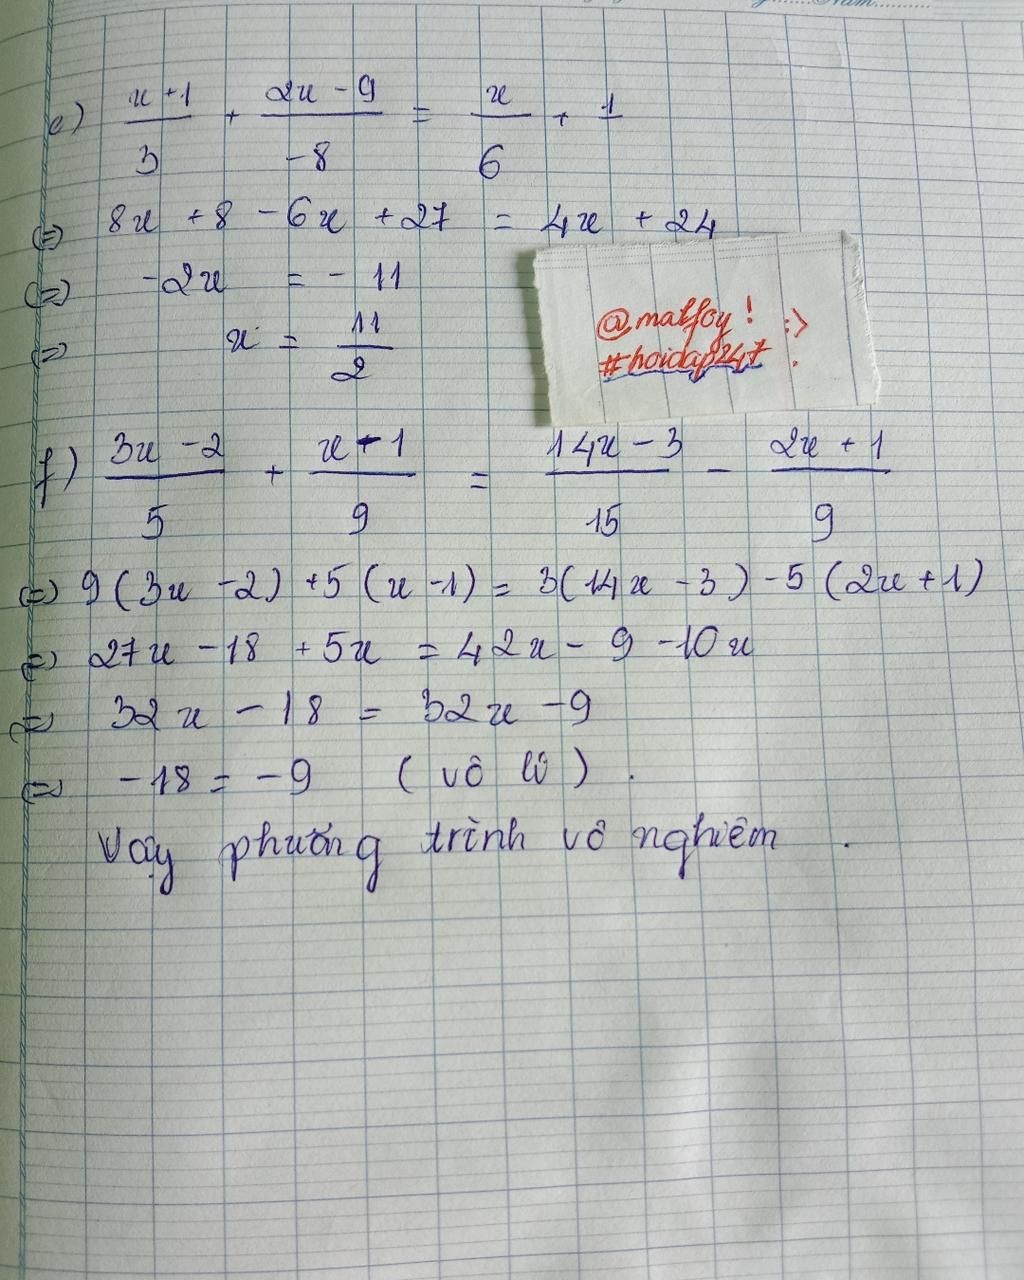 Năm
e) x+1/3 + 2x-9/-8 = x/6 + 1
(=) 8x +8 -6x +27 = 4x +24
(=) -2x = -11
(=) x = 11/2
@malfoy! :>
#hoidap247.
f) 3x-2/5 + x-1/9 = 14x-3/15 - 2x+1/9
(=) 9(3x-2) +5(x-1) = 3(14x-3) -5(2x+1)
(=) 27x -18 +5x = 42x - 9 -10x
(=) 32x - 18 = 32x -9
(=) -18 = -9 (vô lí).
Vậy phương trình vô nghiệm.